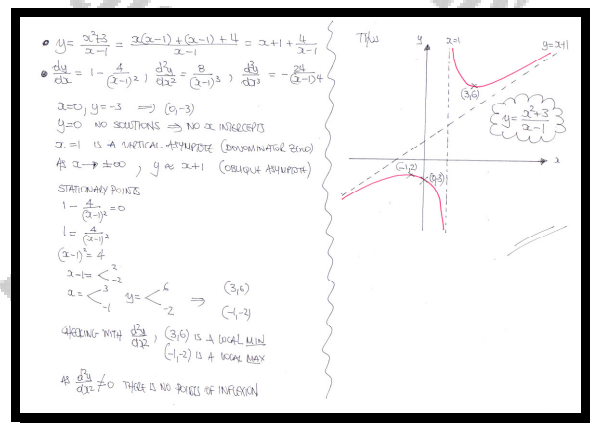 y = \frac{x²+3}{x-1} = \frac{x(x-1)+(x-1)+4}{x-1} = x+1+\frac{4}{x-1}
\frac{dy}{dx} = 1 - \frac{4}{(x-1)²}, \frac{d²y}{dx²} = \frac{8}{(x-1)³}, \frac{d³y}{dx³} = -\frac{24}{(x-1)4}
x=0, y=-3 ⟹ (0,-3)
y=0 NO SOLUTIONS ⟹ NO x INTERCEPTS
x=1 IS A VERTICAL ASYMPTOTE (DENOMINATOR ZERO)
AS x → ±∞, y ≈ x+1 (OBLIQUE ASYMPTOTE)
STATIONARY POINTS
1 - \frac{4}{(x-1)²} = 0
1 = \frac{4}{(x-1)²}
(x-1)² = 4
x-1 = < 2 -2
x = < 3 -1 y = < 6 -2 ⟹ (3,6) (-1,-2)
CHECKING WITH \frac{d²y}{dx²}, (3,6) IS A LOCAL MIN
(-1,-2) IS A LOCAL MAX
AS \frac{d²y}{dx²} ≠ 0 THERE IS NO POINTS OF INFLEXION
THUS
y
x=1
y=x+1
(3,6)
y = \frac{x²+3}{x-1}
x
(-1,2)
(0,-3)